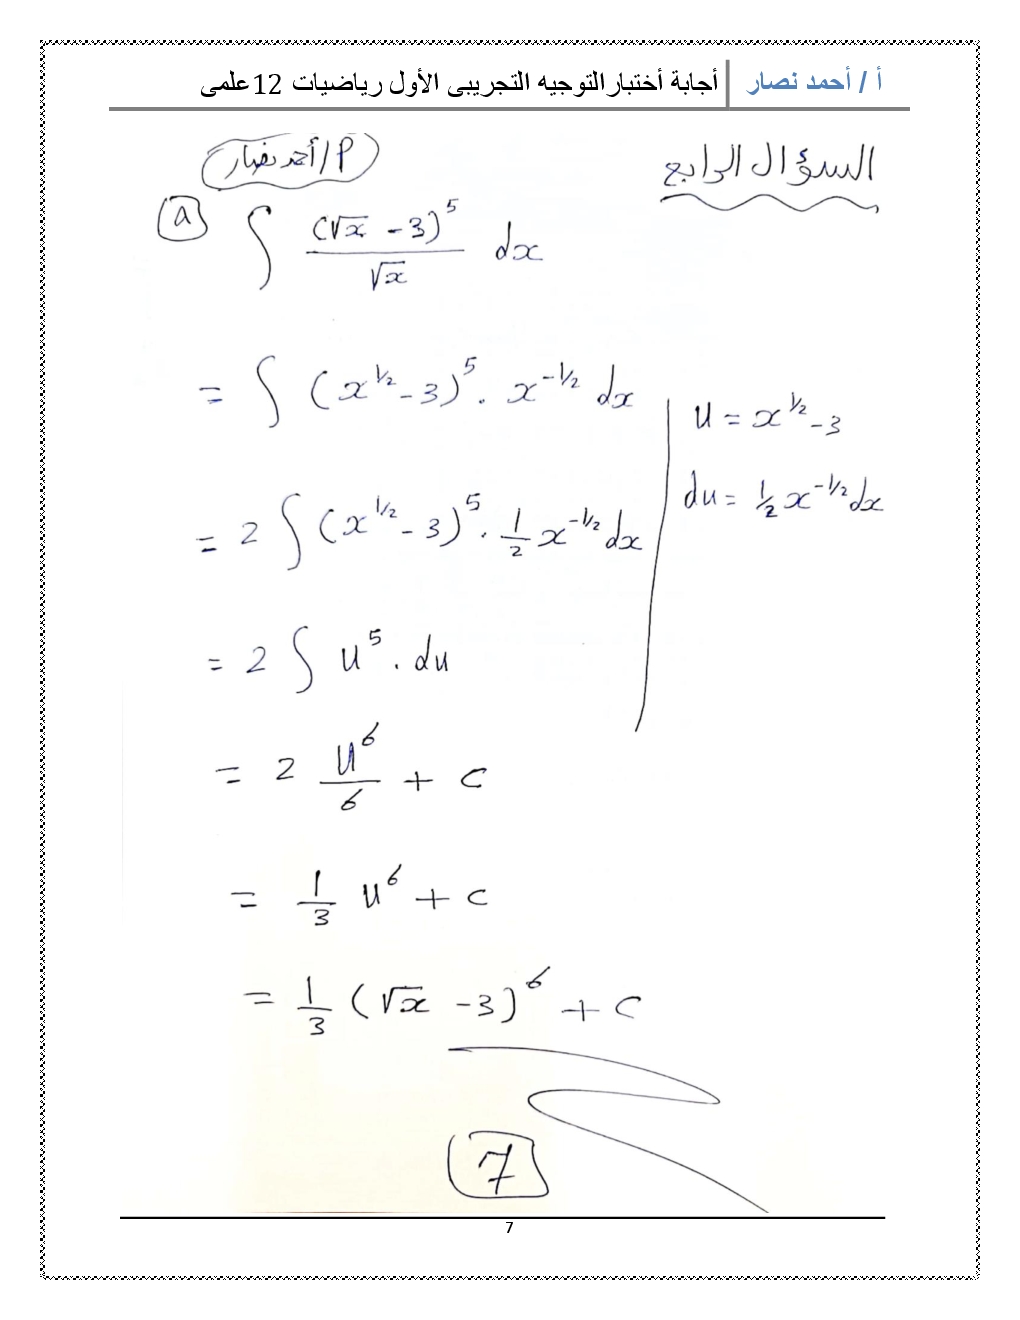 أ / أحمد نصار أجابة أختبارالتوجيه التجريبى الأول رياضيات 12علمى
السؤال الرابع
أ/أحمد نصار
a ∫ (√x - 3)^5 / √x dx
= ∫ (x^1/2 - 3)^5 . x^-1/2 dx
u = x^1/2 - 3
du = 1/2 x^-1/2 dx
= 2 ∫ (x^1/2 - 3)^5 . 1/2 x^-1/2 dx
= 2 ∫ u^5 . du
= 2 u^6/6 + c
= 1/3 u^6 + c
= 1/3 (√x - 3)^6 + c
7
7